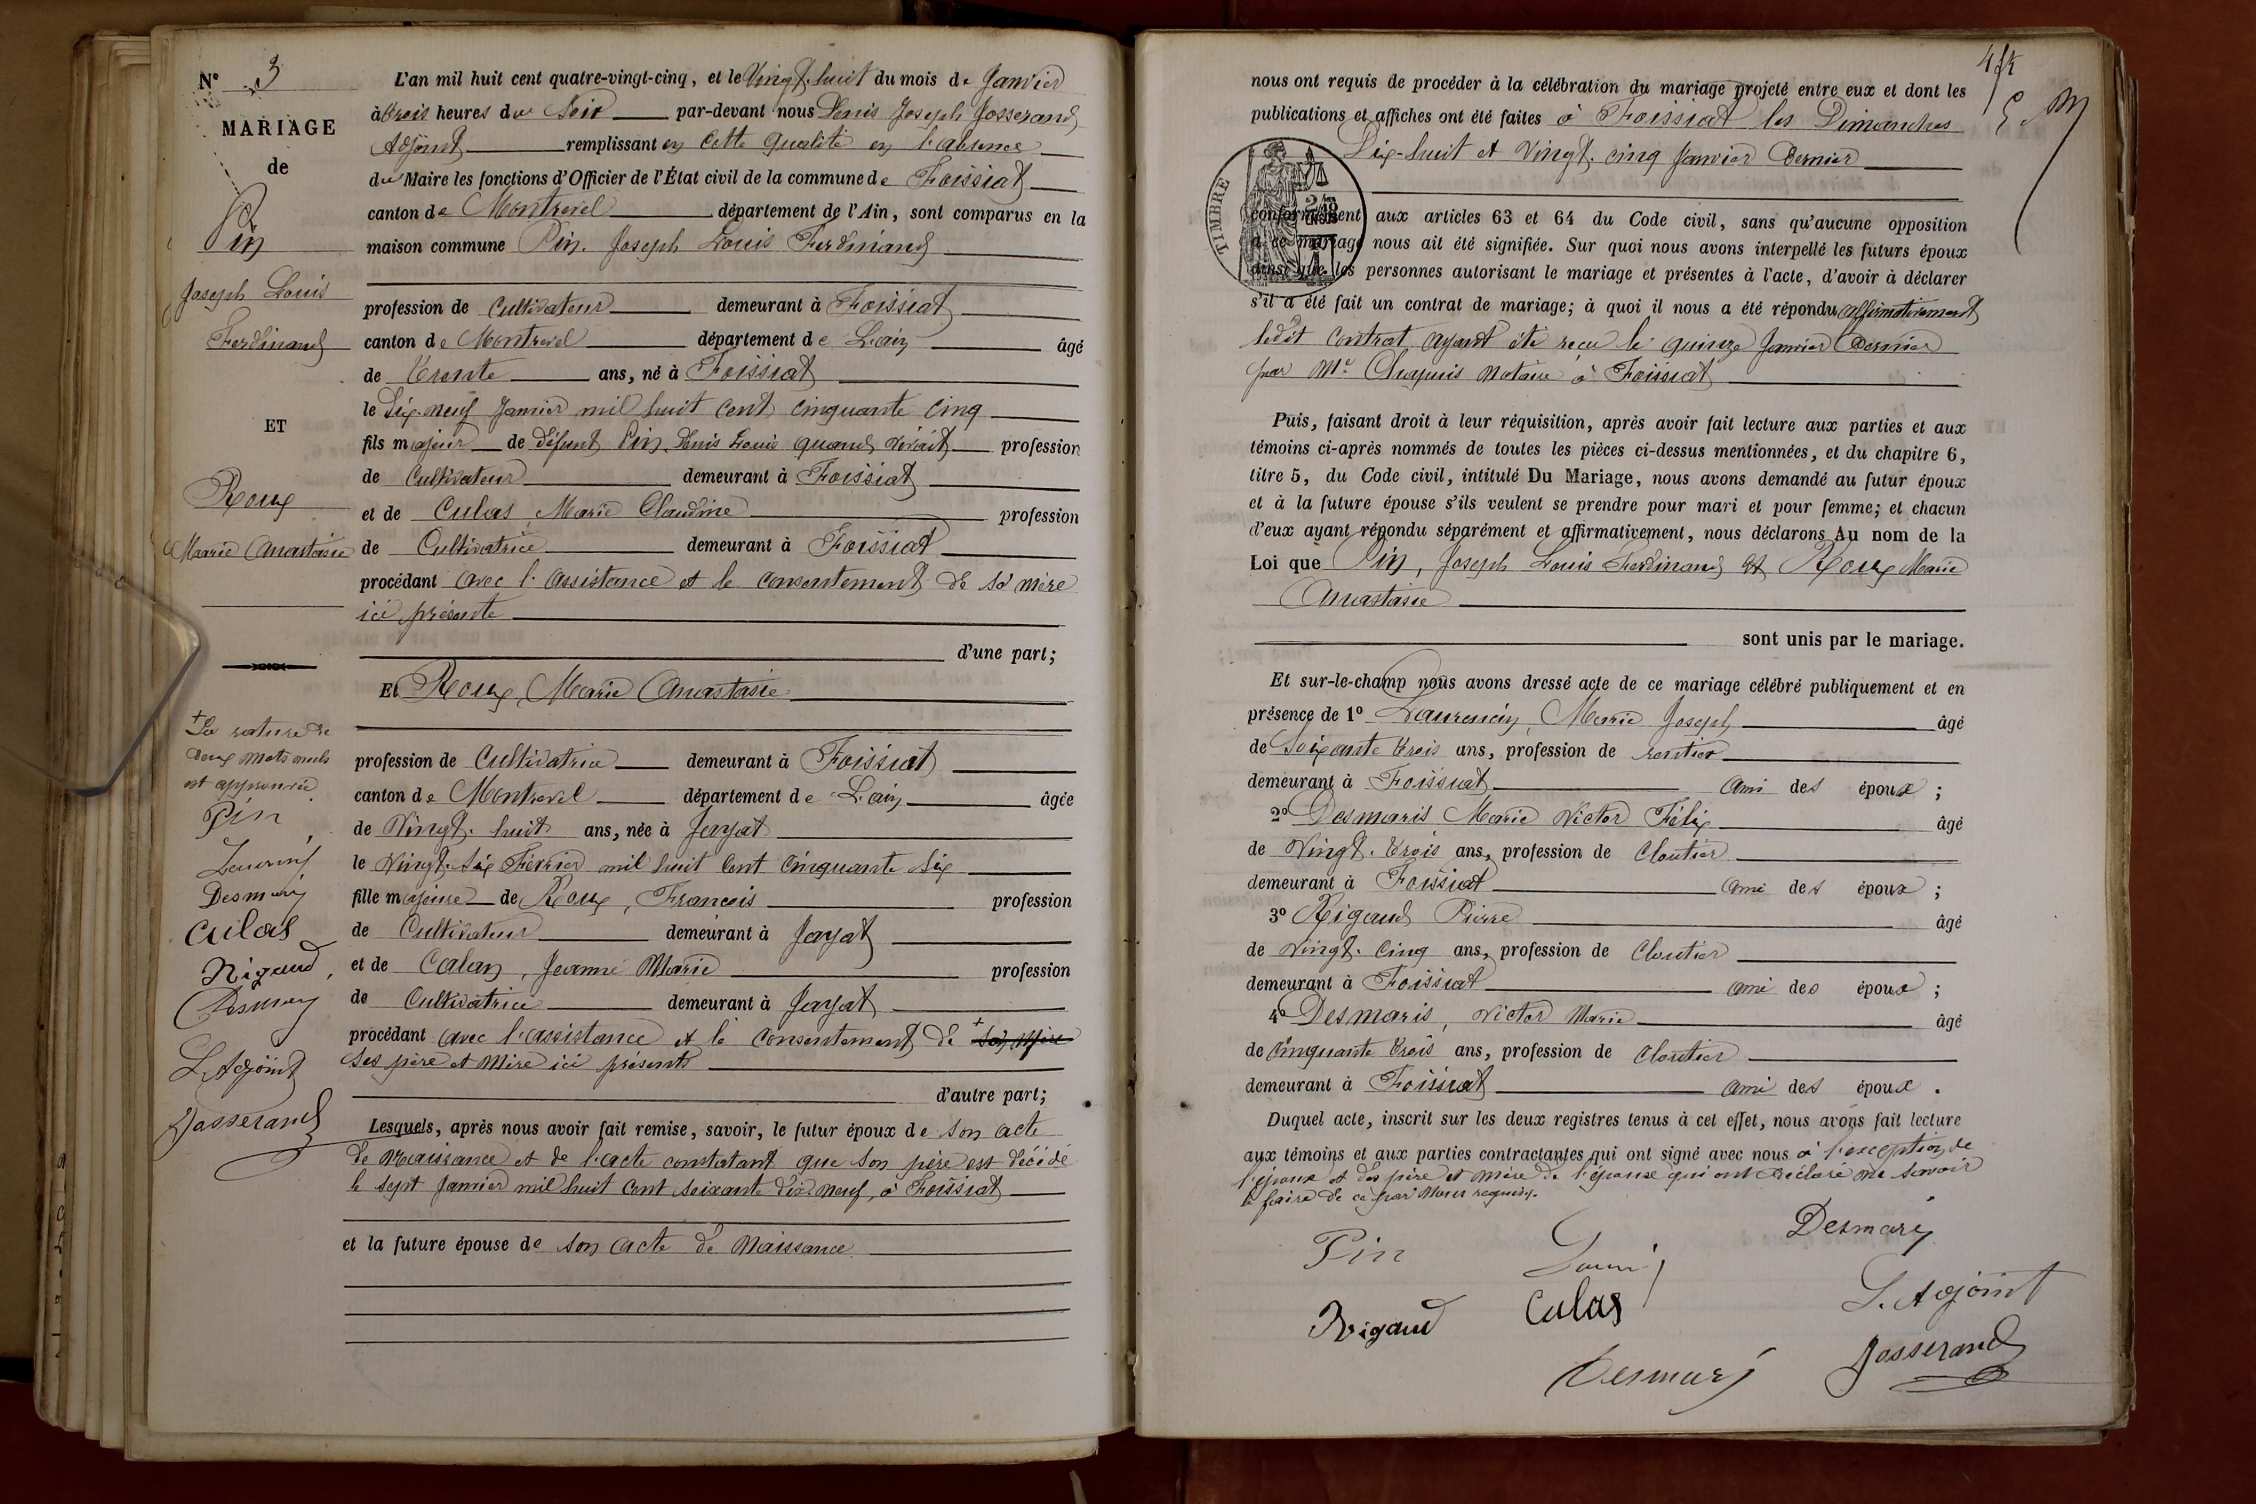 N° 3
MARIAGE
de
Pin
Joseph Louis
Ferdinand
ET
Roux
Marie Anastasie
+ La rature de
deux mots nuls
est approuvée
Pin
Desmaris
Culas
Rigaud
Desmaris
L'Adjoint
Josserand
L'an mil huit cent quatre-vingt-cinq, et le Vingt-huit du mois de Janvier
à trois heures du Soir par-devant nous Denis Joseph Josserand
Adjoint remplissant en cette qualité en l'absence
du Maire les fonctions d'Officier de l'État civil de la commune de Foissiat
canton de Montrevel département de l'Ain, sont comparus en la
maison commune Pin, Joseph Louis Ferdinand
profession de Cultivateur demeurant à Foissiat
canton de Montrevel département de L'ain âgé
de Trente ans, né à Foissiat
le Dix-neuf Janvier mil huit cent cinquante cinq
fils majeur de défunt Pin, Denis Louis quand vivait profession
de Cultivateur demeurant à Foissiat
et de Culas, Marie Claudine profession
de Cultivatrice demeurant à Foissiat
procédant avec l'assistance et le consentement de sa mère
ici présente
d'une part;
Et Roux, Marie Anastasie
profession de Cultivatrice demeurant à Foissiat
canton de Montrevel département de L'ain âgée
de Vingt-huit ans, née à Jayat
le Vingt-six Février mil huit cent cinquante six
fille majeure de Roux, François profession
de Cultivateur demeurant à Jayat
et de Calan, Jeanne Marie profession
de Cultivatrice demeurant à Jayat
procédant avec l'assistance et le consentement de + sa mère
ses père et mère ici présents
d'autre part;
Lesquels, après nous avoir fait remise, savoir, le futur époux de son acte
de naissance et de l'acte constatant que son père est décédé
le sept Janvier mil huit cent soixante dix-neuf, à Foissiat
et la future épouse de son acte de naissance
nous ont requis de procéder à la célébration du mariage projeté entre eux et dont les
publications et affiches ont été faites à Foissiat les Dimanches
Dix-huit et Vingt-cinq Janvier dernier
TIMBRE
conformément aux articles 63 et 64 du Code civil, sans qu'aucune opposition
à ce mariage nous ait été signifiée. Sur quoi nous avons interpellé les futurs époux
ainsi que les personnes autorisant le mariage et présentes à l'acte, d'avoir à déclarer
s'il a été fait un contrat de mariage; à quoi il nous a été répondu affirmativement
ledit contrat ayant été reçu le quinze Janvier dernier
par Me Chapuis notaire à Foissiat
Puis, faisant droit à leur réquisition, après avoir fait lecture aux parties et aux
témoins ci-après nommés de toutes les pièces ci-dessus mentionnées, et du chapitre 6,
titre 5, du Code civil, intitulé Du Mariage, nous avons demandé au futur époux
et à la future épouse s'ils veulent se prendre pour mari et pour femme; et chacun
d'eux ayant répondu séparément et affirmativement, nous déclarons Au nom de la
Loi que Pin, Joseph Louis Ferdinand et Roux Marie
Anastasie
sont unis par le mariage.
Et sur-le-champ nous avons dressé acte de ce mariage célébré publiquement et en
présence de 1° Laurencin, Marie Joseph âgé
de Soixante trois ans, profession de rentier
demeurant à Foissiat ami des époux ;
2° Desmaris Marie Victor Félix âgé
de Vingt-trois ans, profession de Cloutier
demeurant à Foissiat ami des époux ;
3° Rigaud Pierre âgé
de Vingt-cinq ans, profession de Cloutier
demeurant à Foissiat ami des époux ;
4° Desmaris, Victor Marie âgé
de Cinquante trois ans, profession de Cloutier
demeurant à Foissiat ami des époux .
Duquel acte, inscrit sur les deux registres tenus à cet effet, nous avons fait lecture
aux témoins et aux parties contractantes qui ont signé avec nous à l'exception de
l'épouse et des père et mère de l'épouse qui ont déclaré ne savoir
le faire de ce par nous requis.
Pin
Desmaris
Rigaud
Culas
L'Adjoint
Desmaris
Josserand